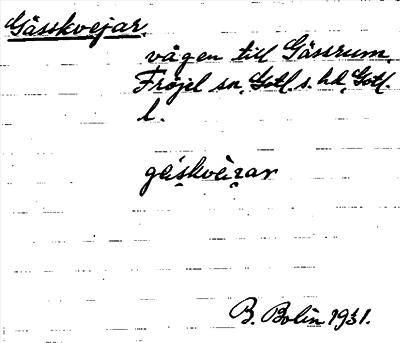 Gässkvejar.
vägen till Gässrum,
Fröjel sn, Gotl. s. hd, Gotl.
l.
gäskvèi̯ar
B. Bolin 1931.